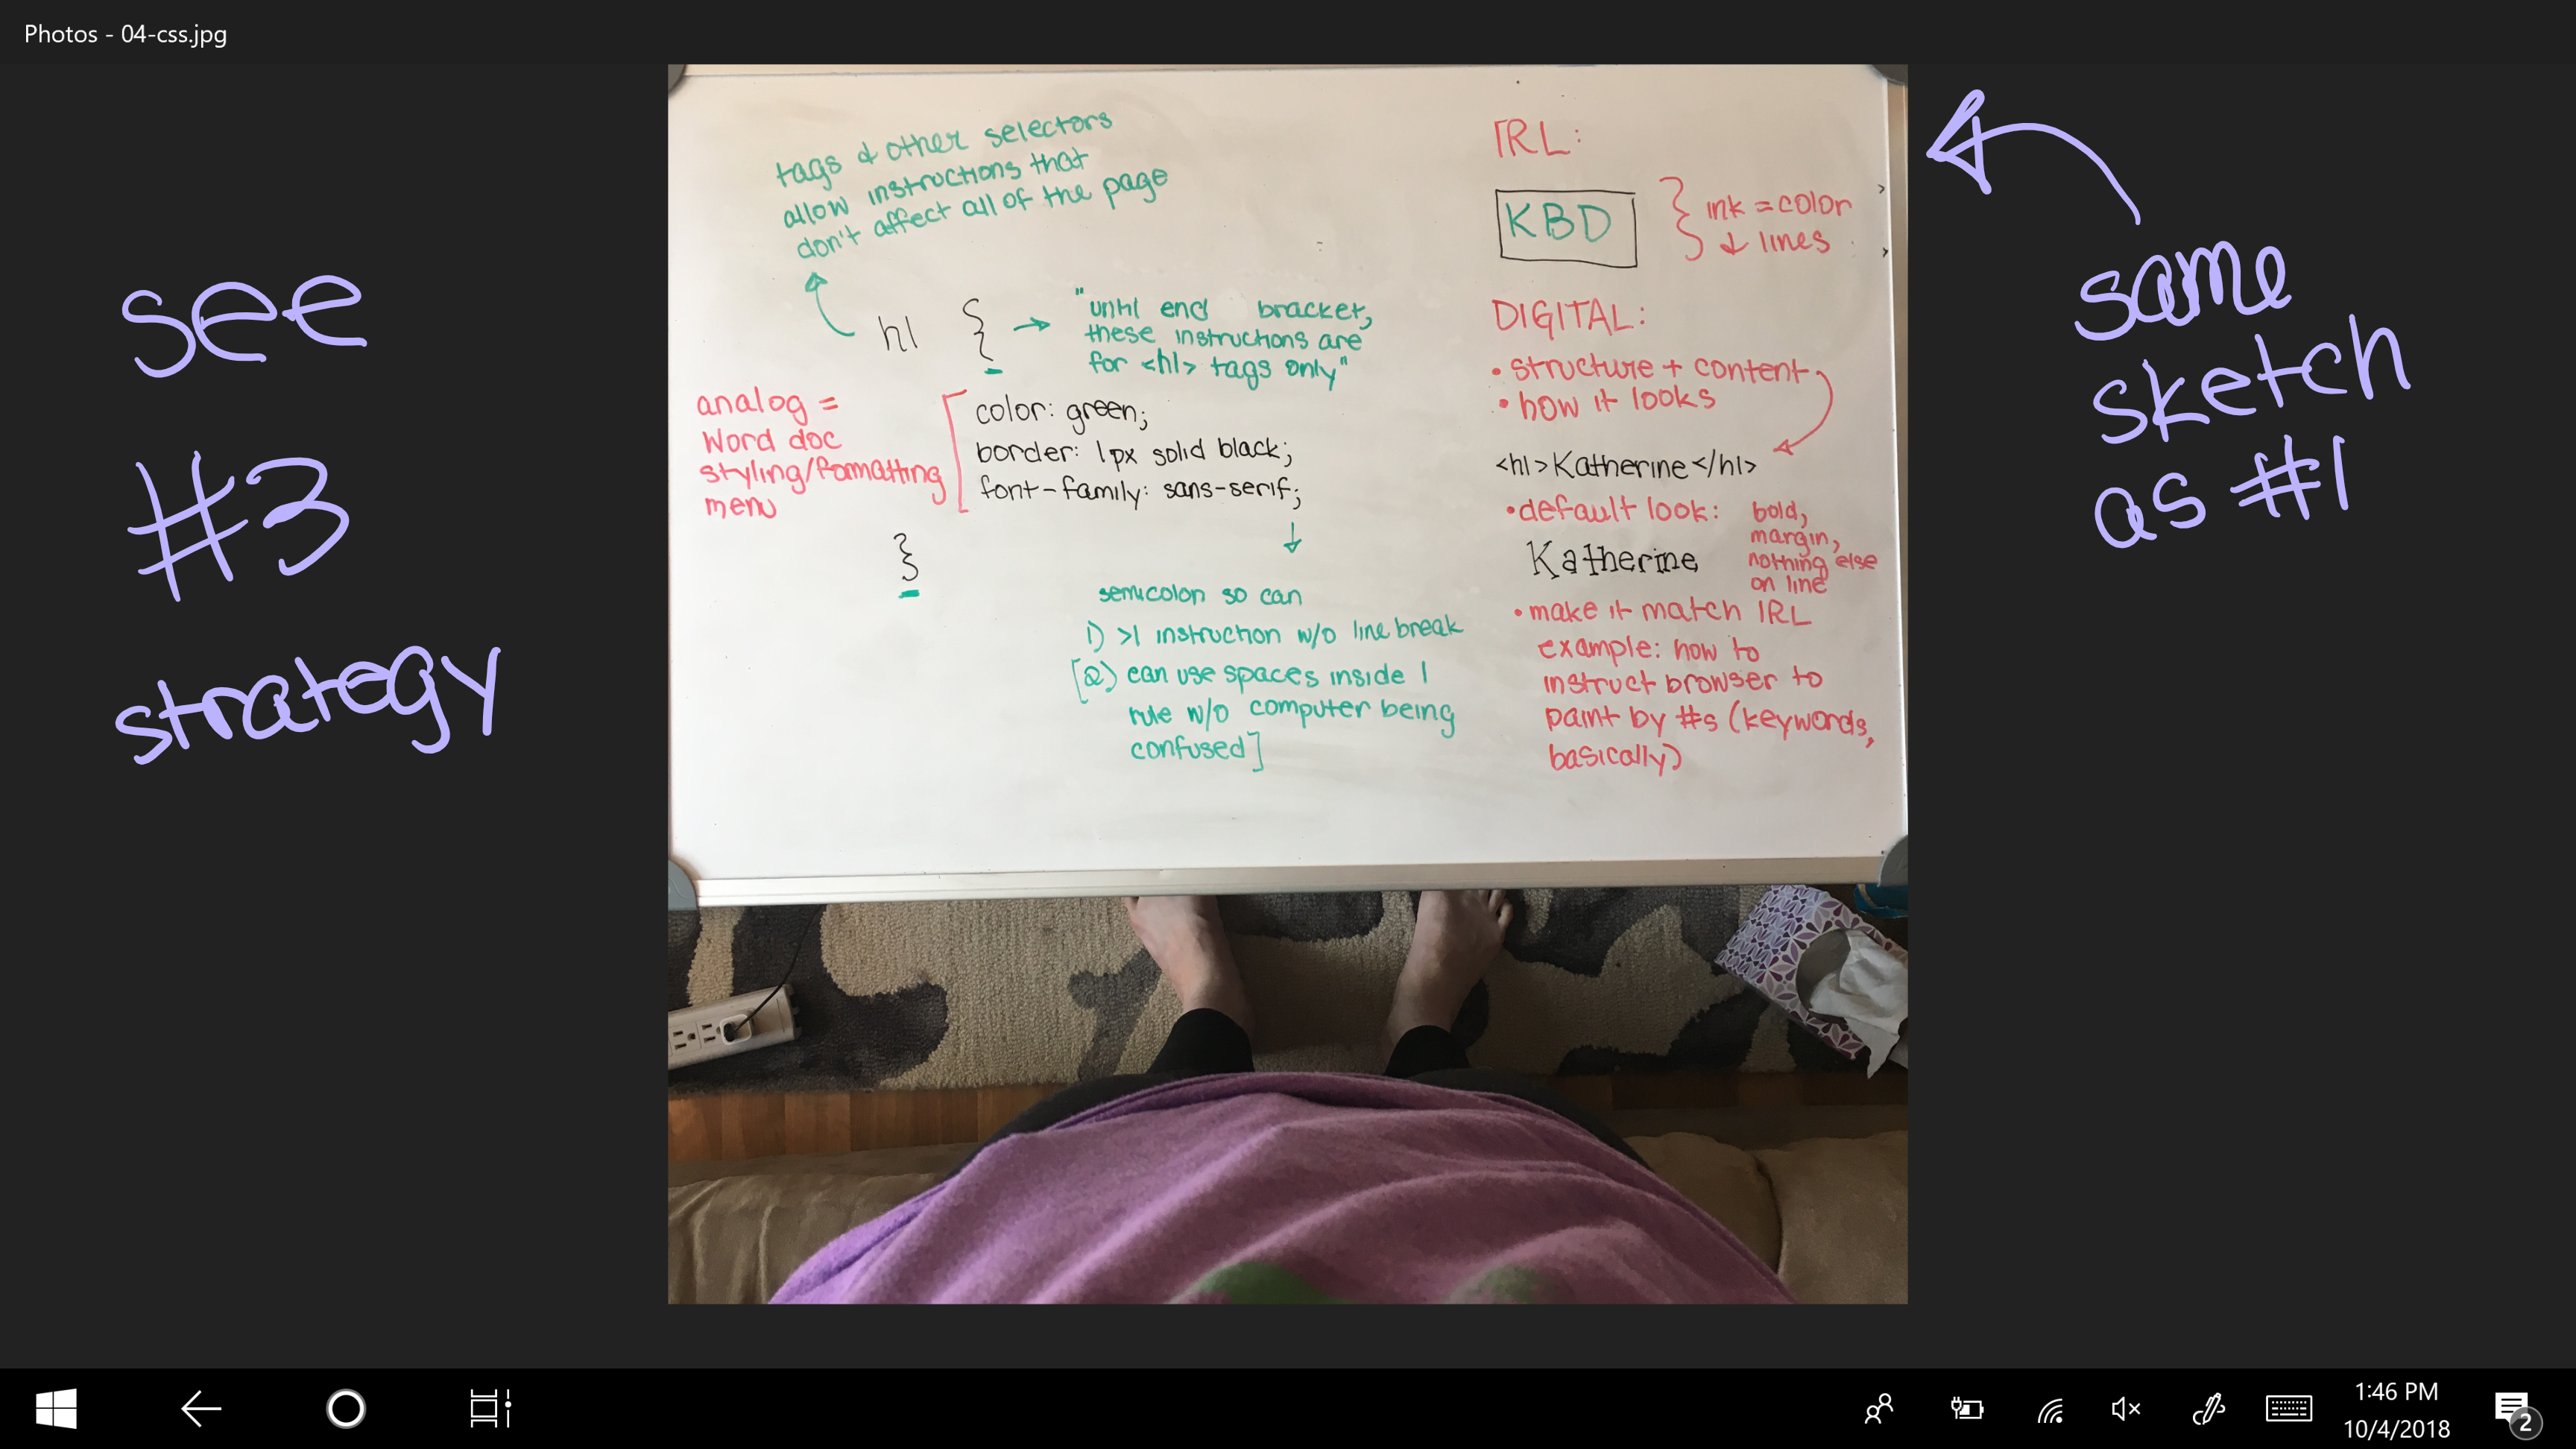 Photos - 04-css.jpg
see
#3
strategy
tags & other selectors
allow instructions that
don't affect all of the page
h1 {
"until end bracket,
these instructions are
for <h1> tags only"
analog =
Word doc
styling/formatting
menu
color: green;
border: 1px solid black;
font-family: sans-serif;
}
semicolon so can
1) >1 instruction w/o line break
[2) can use spaces inside 1
rule w/o computer being
confused]
IRL:
KBD
} ink = color
↓ lines
DIGITAL:
• structure + content
• how it looks
<h1>Katherine</h1>
• default look:
bold,
margin,
nothing else
on line
Katherine
• make it match IRL
example: how to
instruct browser to
paint by #s (keywords,
basically)
same
sketch
as #1
1:46 PM
10/4/2018
2